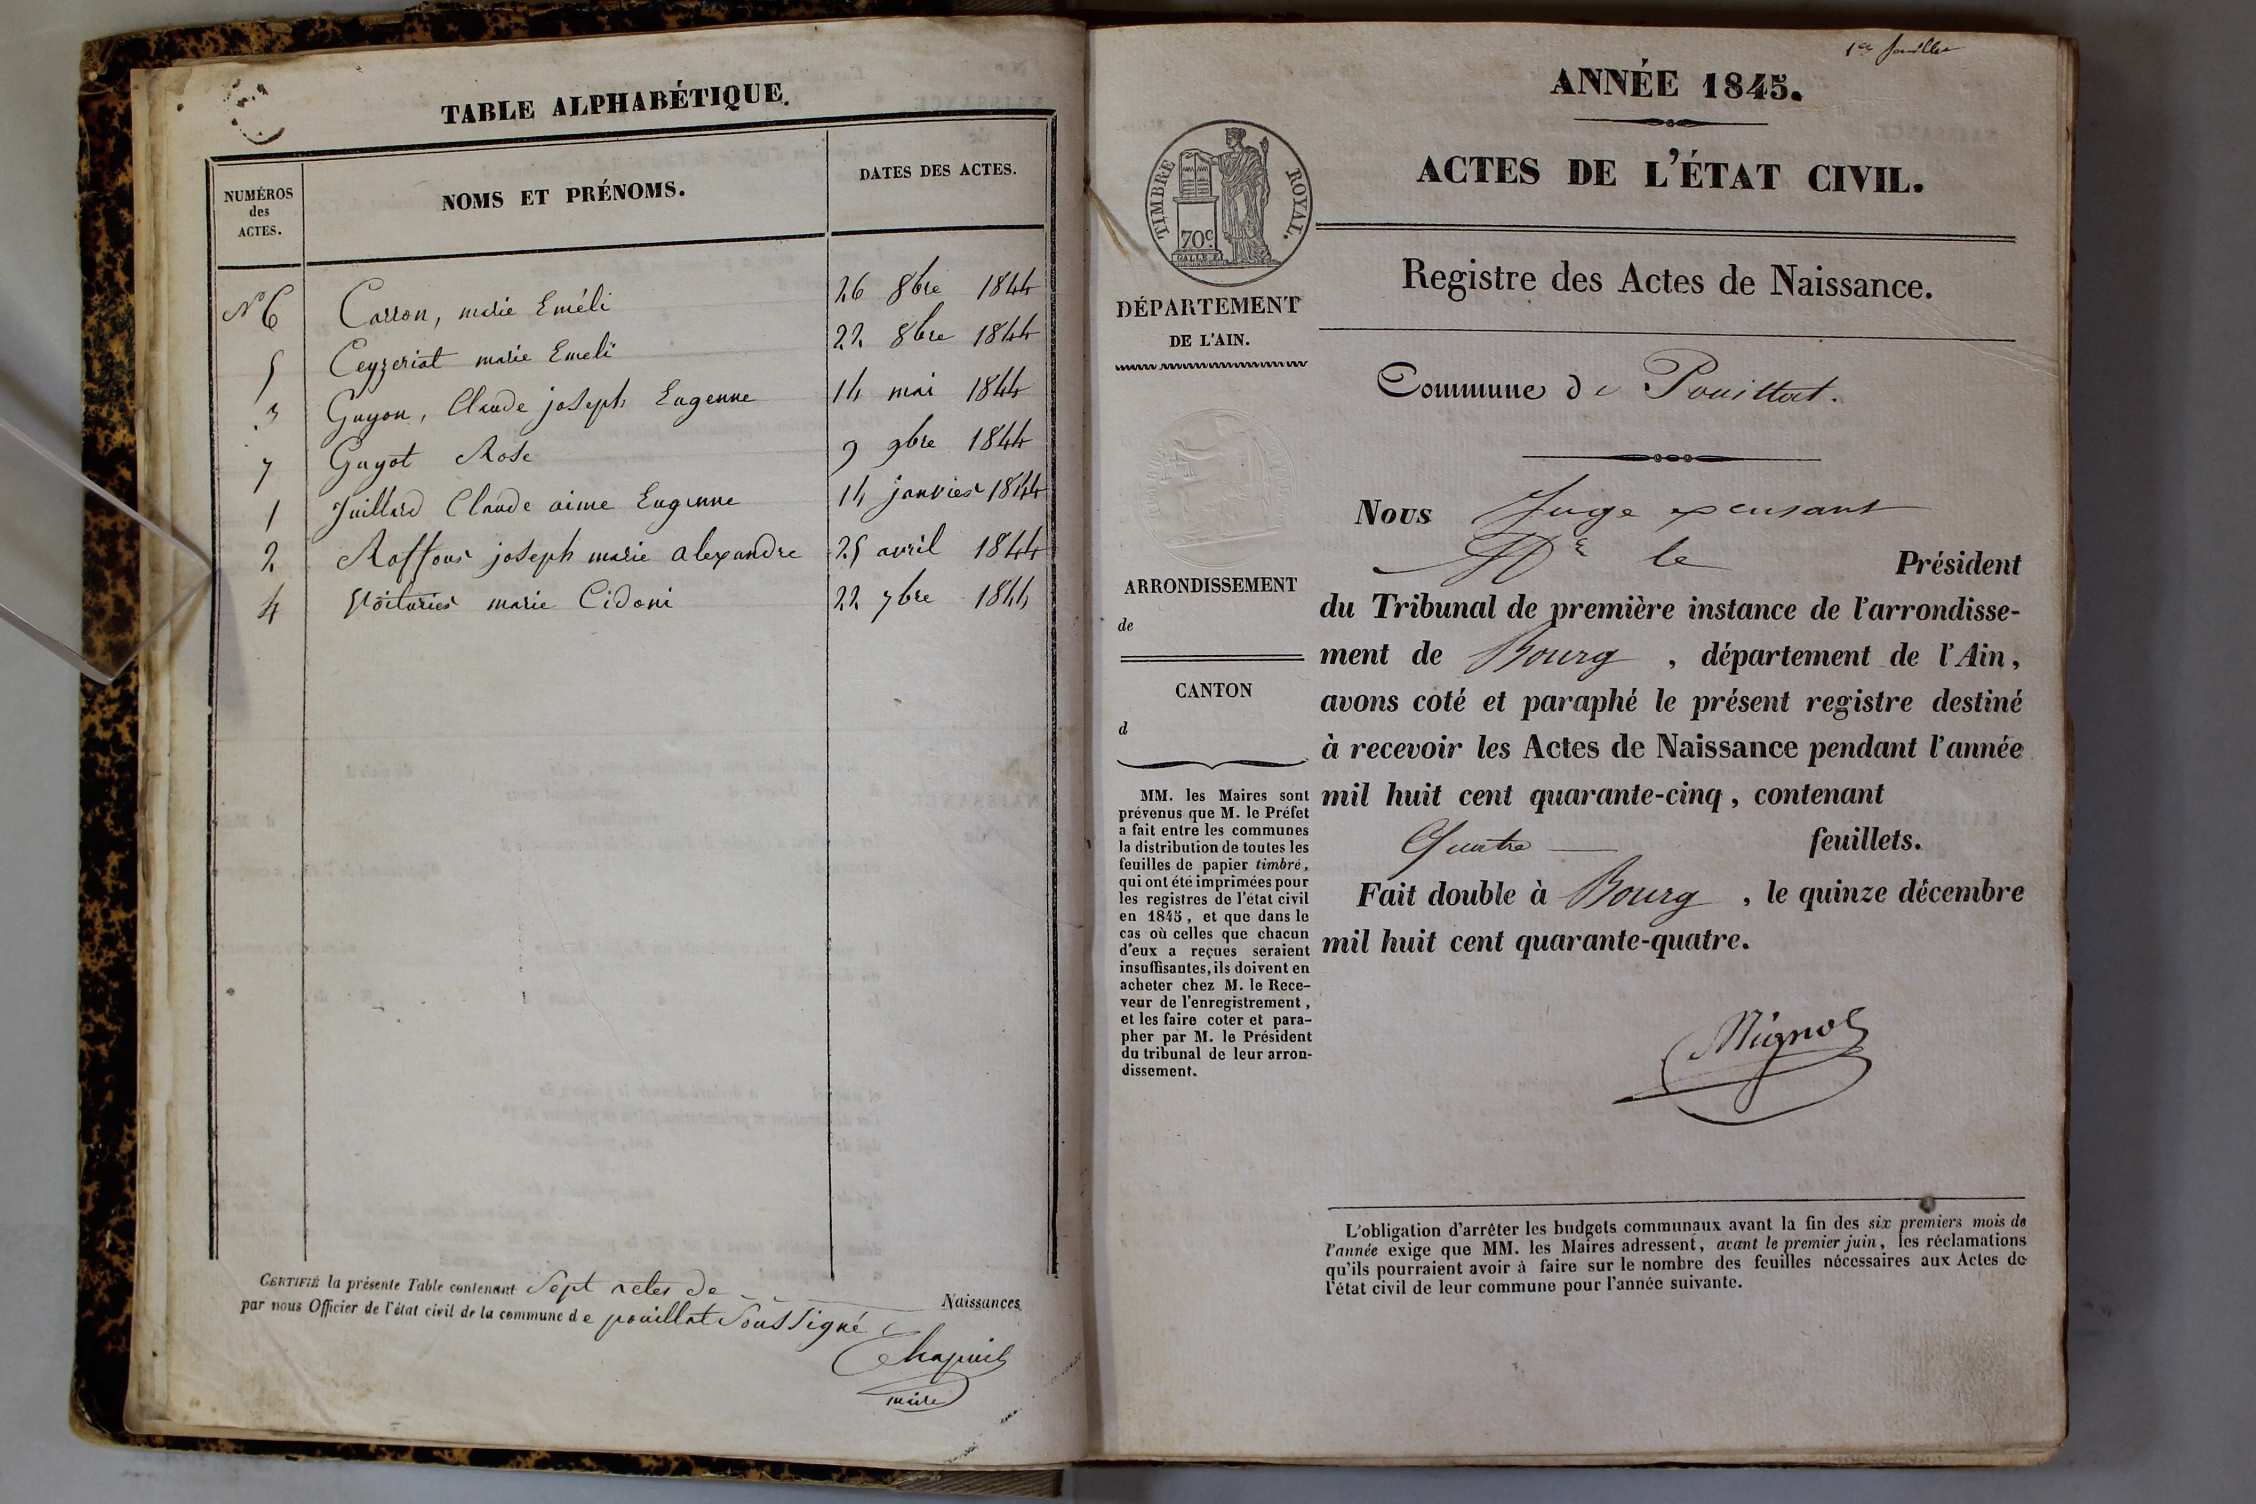 TABLE ALPHABÉTIQUE.
NUMÉROS
des
ACTES.
NOMS ET PRÉNOMS.
DATES DES ACTES.
N° 6 Carron, marie Eméli 26 8bre 1844
5 Ceyzeriat marie Emeli 22 8bre 1844
3 Guyon, Claude joseph Eugenne 14 mai 1844
7 Guyot Rose 9 9bre 1844
1 Juillard Claude aime Eugenne 14 janvier 1844
2 Raffour joseph marie alexandre 25 avril 1844
4 Voiturier marie Cidoni 22 7bre 1844
CERTIFIÉ la présente Table contenant Sept actes de Naissances
par nous Officier de l'état civil de la commune de pouillat Soussigné
Chapuis
maire
1er feuillet
ANNÉE 1845.
ACTES DE L'ÉTAT CIVIL.
TIMBRE ROYAL.
70c
DÉPARTEMENT
DE L'AIN.
ARRONDISSEMENT
de
CANTON
d
MM. les Maires sont
prévenus que M. le Préfet
a fait entre les communes
la distribution de toutes les
feuilles de papier timbré,
qui ont été imprimées pour
les registres de l'état civil
en 1845, et que dans le
cas où celles que chacun
d'eux a reçues seraient
insuffisantes, ils doivent en
acheter chez M. le Rece-
veur de l'enregistrement,
et les faire coter et para-
pher par M. le Président
du tribunal de leur arron-
dissement.
Registre des Actes de Naissance.
Commune de Pouillat.
Nous Juge
le Président
du Tribunal de première instance de l'arrondisse-
ment de Bourg, département de l'Ain,
avons coté et paraphé le présent registre destiné
à recevoir les Actes de Naissance pendant l'année
mil huit cent quarante-cinq, contenant
Quatre feuillets.
Fait double à Bourg, le quinze décembre
mil huit cent quarante-quatre.
Mignot
L'obligation d'arrêter les budgets communaux avant la fin des six premiers mois de
l'année exige que MM. les Maires adressent, avant le premier juin, les réclamations
qu'ils pourraient avoir à faire sur le nombre des feuilles nécessaires aux Actes de
l'état civil de leur commune pour l'année suivante.